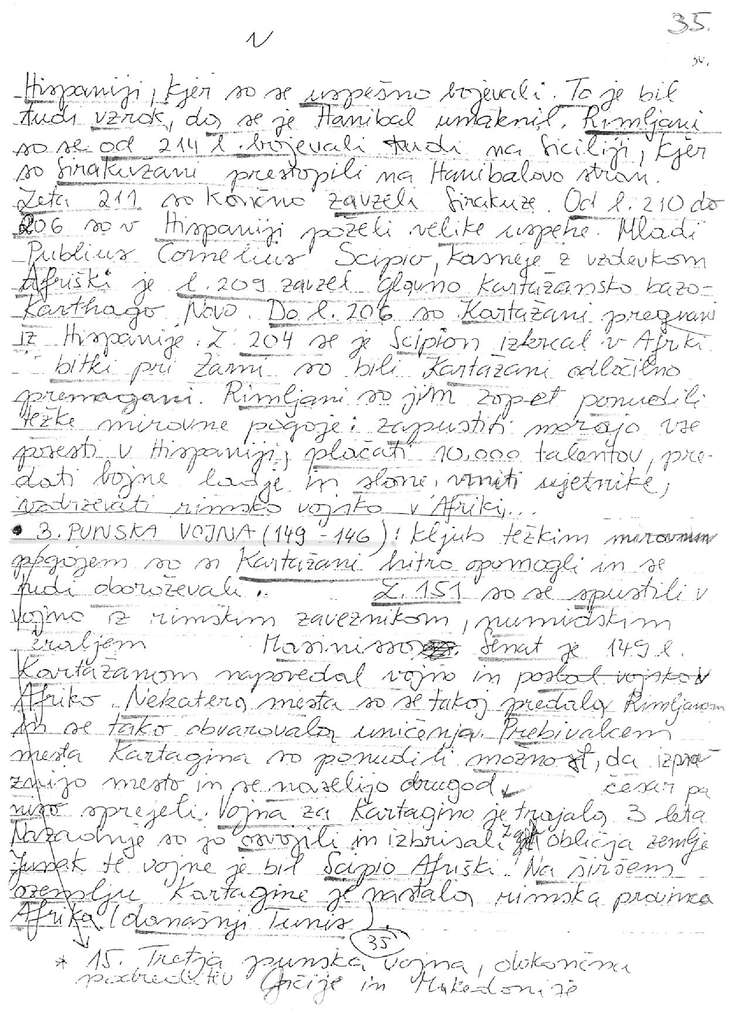 35.
N
sv.
Hispaniji, kjer so se uspešno bojevali. To je bil
tudi vzrok, da se je Hanibal umaknil. Rimljani
so se od 214 l. bojevali tudi na Siciliji, kjer
so Sirakužani prestopili na Hanibalovo stran.
Leta 211 so končno zavzeli Sirakuze. Od l. 210 do
206 so v Hispaniji poželi velike uspehe. Mladi
Publius Cornelius Scipio, kasneje z vzdevkom
Afriški je l. 209 zavzel glavno kartažansko bazo-
Karthago Novo. Do l. 206 so Kartažani pregnani
iz Hispanije. L. 204 se je Scipion izkrcal v Afriki.
bitki pri Zami so bili Kartažani odločilno
premagani. Rimljani so jim zopet ponudili
težke mirovne pogoje: zapustiti morajo vse
posesti v Hispaniji, plačati 10.000 talentov, pre-
dati bojne ladje in slone, vrniti ujetnike,
vzdrževati rimsko vojsko v Afriki,...
• 3. PUNSKA VOJNA (149 - 146): kljub težkim mirovnim
pogojem so si Kartažani hitro opomogli in se
tudi oboroževali.. L. 151 so se spustili v
vojno iz rimskim zaveznikom, numidskim
kraljem Masinisso. Senat je 149 l.
Kartažanom napovedal vojno in poslal vojsko v
Afriko. Nekatera mesta so se takoj predala Rimljanom
in se tako obvarovala uničenja. Prebivalcem
mesta Kartagina so ponudili možnost, da izpra-
znijo mesto in se naselijo drugod, česar pa
niso sprejeli. Vojna za Kartagino je trajala 3 leta
Nazadnje so jo osvojili in izbrisali z obličja zemlje
Junak te vojne je bil Scipio Afriški. Na širšem
ozemlju Kartagine je nastala rimska provinca
Afrika (današnji Tunis).
35
* 15. Tretja punska vojna, dokončna
podreditev Grčije in Makedonije